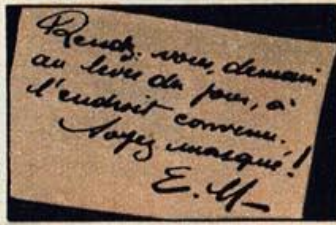 Rendez-vous, demain
au lever du jour, à
l'endroit convenu.
Soyez masqué!
E. M